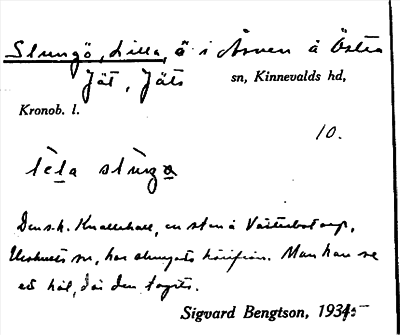 Slungö, Lilla, ö i Åsnen å Östra
Jät, Jäts sn, Kinnevalds hd,
Kronob. l.
10.
lèla slùngə
Den s.k. Knallehall, en sten å Västerbotorp,
sn, har slungats härifrån. Man kan se
ett hål, där den tagits.
Sigvard Bengtson, 1935